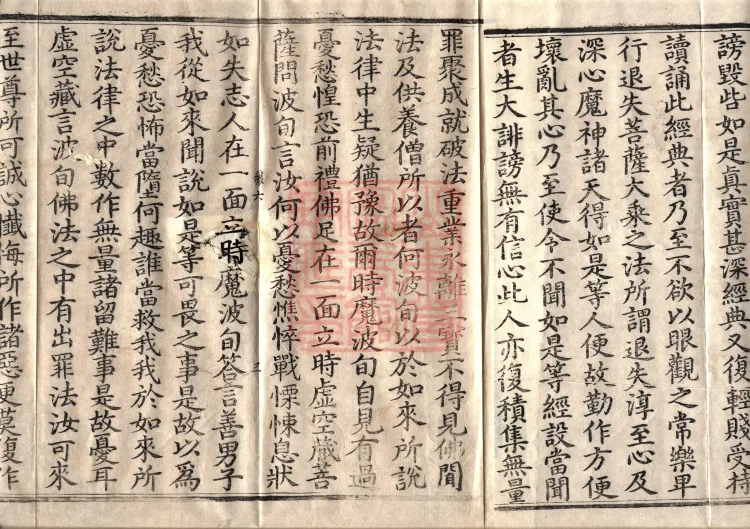 謗毀皆如是真實甚深經典又復輕賤受持
讀誦此經典者乃至不欲以眼觀之常樂卑
行退失菩薩大乘之法所謂退失淳至心及
深心魔神諸天得如是等人便故勤作方便
壞亂其心乃至使令不聞如是等經設當聞
者生大誹謗無有信心此人亦復積集無量
罪聚成就破法重業永離三寶不得見佛聞
法及供養僧所以者何波旬以於如來所說
法律中生疑猶豫故爾時魔波旬自見有過
憂愁惶恐前禮佛足在一面立時虛空藏菩
薩問波旬言汝何以憂愁憔悴戰慄悚息狀
如失志人在一面立時魔波旬答言善男子
我從如來聞說如是等可畏之事是故以為
憂愁恐怖當墮何趣誰當救我我於如來所
說法律之中數作無量諸留難事是故憂耳
虛空藏言波旬佛法之中有出罪法汝可來
至世尊所可誠心懺悔所作諸惡更莫復作
六
三